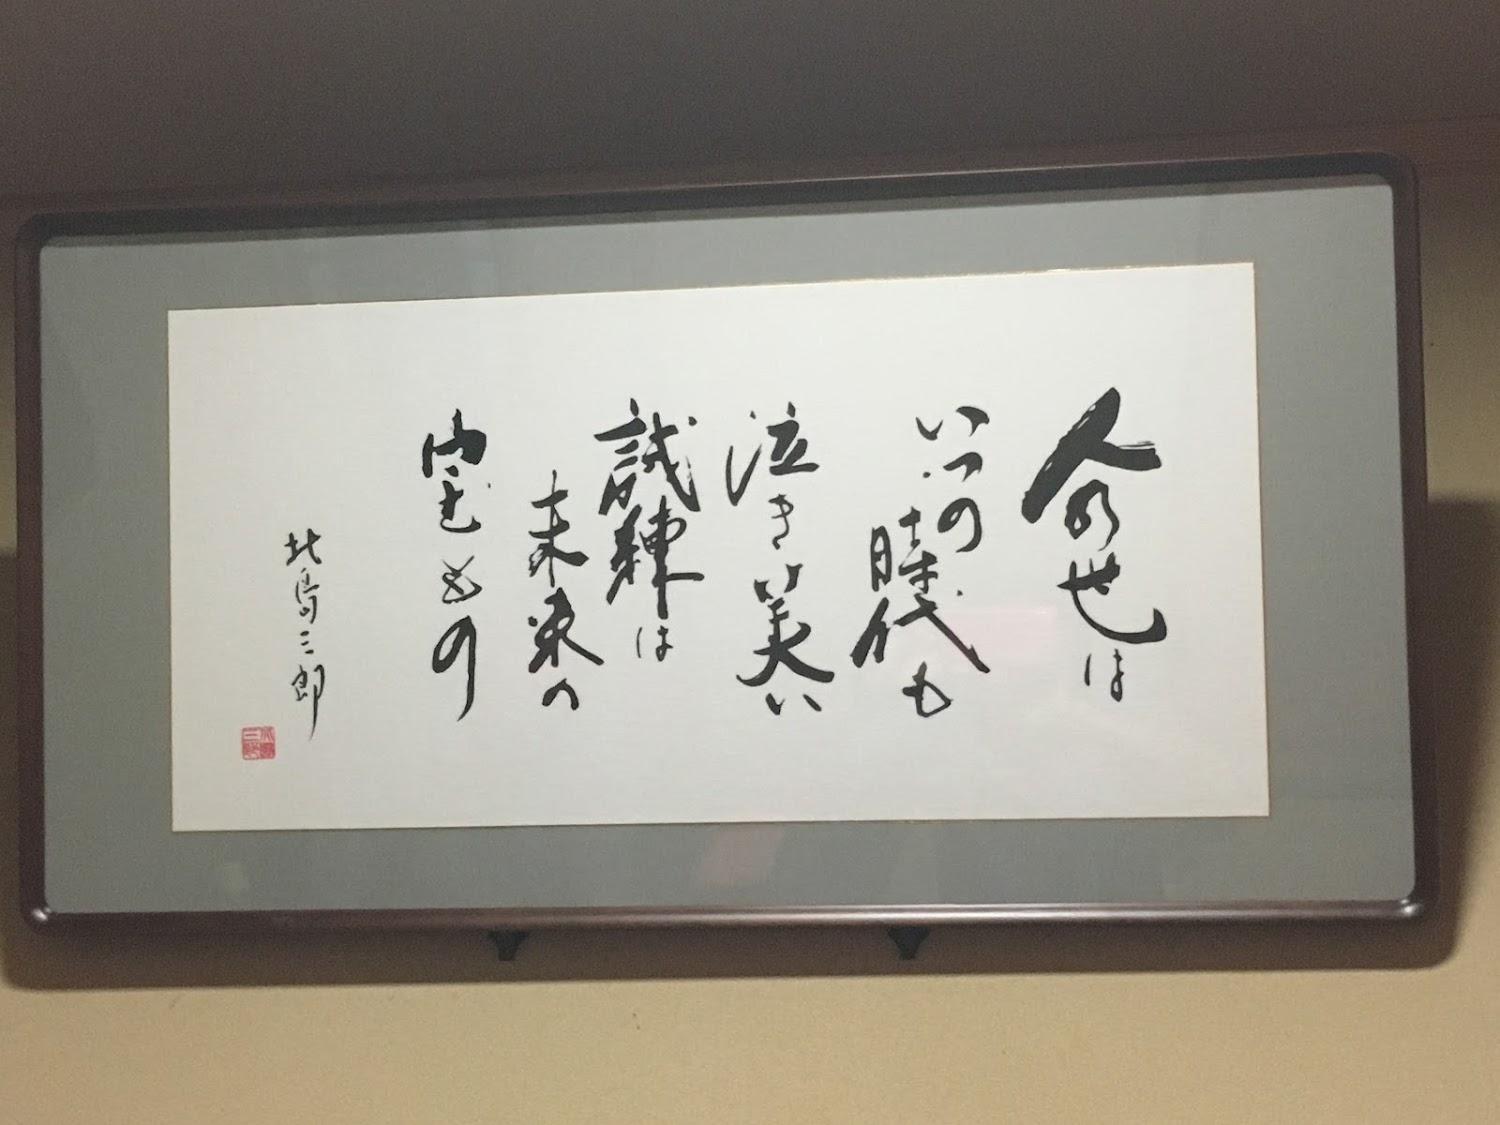 人の世は
いつの
時代も
泣き笑い
試練は
未来の
宝もの
北島三郎